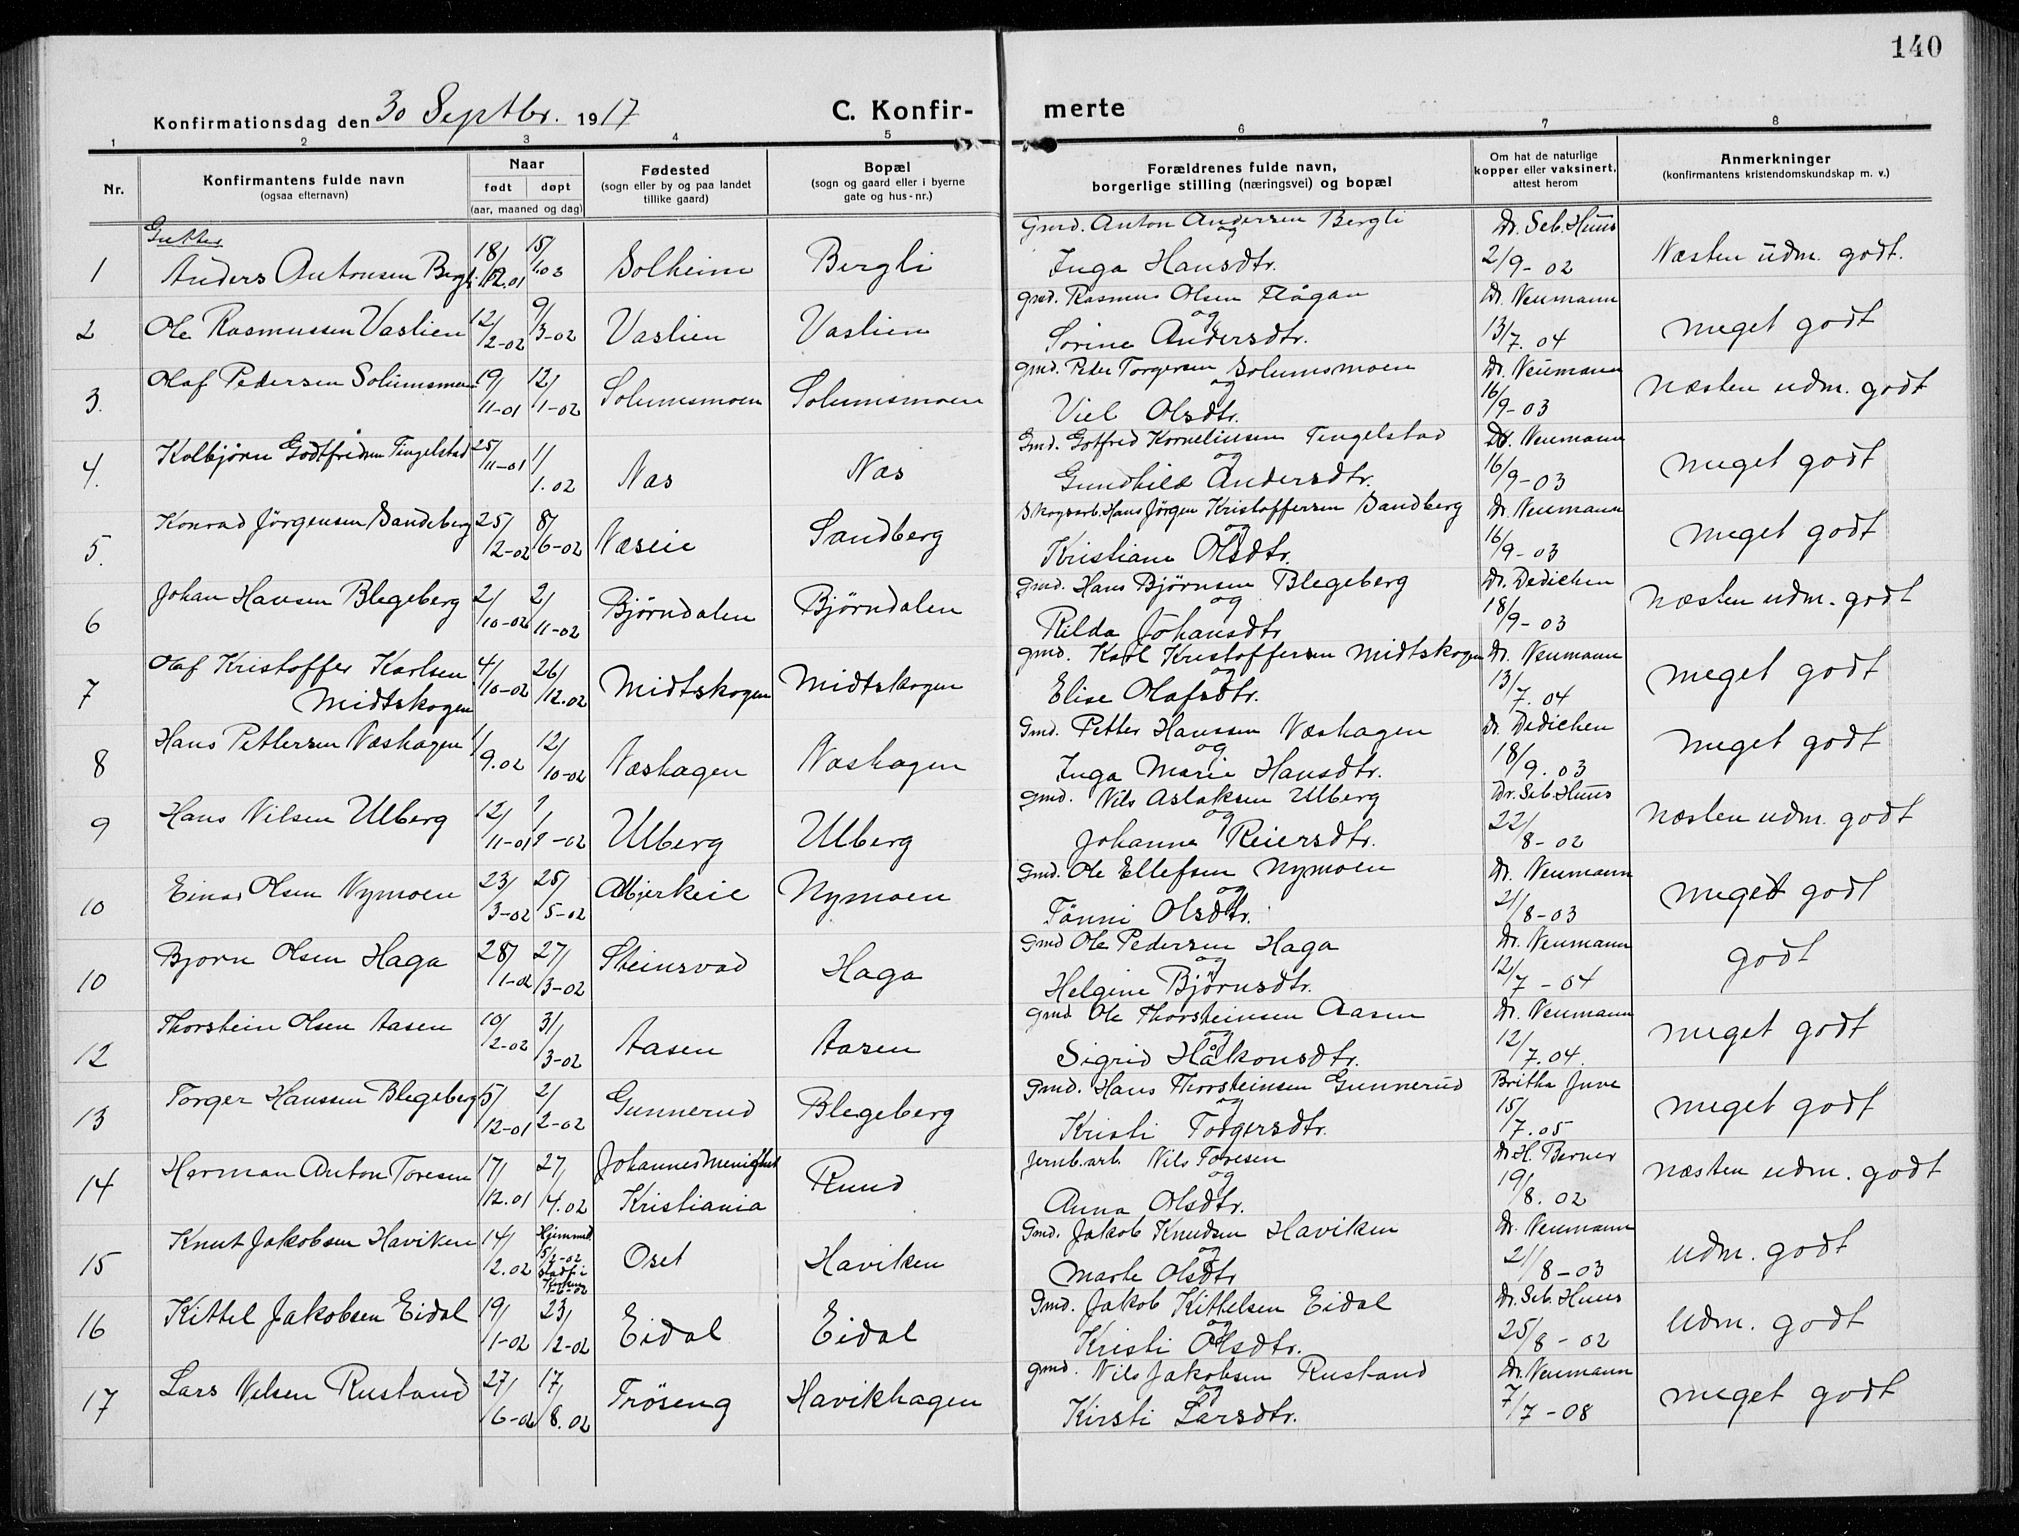 140
Konfirmationsdag den 30 Septbr. 1917
C. Konfir-merte
1 2 3 4 5 6 7 8
Nr.
Konfirmantens fulde navn
(ogsaa efternavn)
Naar
født døpt
(aar, maaned og dag)
Fødested
(sogn eller by og paa landet
tillike gaard)
Bopæl
(sogn og gaard eller i byerne
gate og hus-nr.)
Forældrenes fulde navn,
borgerlige stilling (næringsvei) og bopæl
Om hat de naturlige
kopper eller vaksinert,
attest herom
Anmerkninger
(konfirmantens kristendomskundskap m. v.)
Gutter
1 Anders Antonsen Bergli 18/12.01 15/1.03 Solheim Bergli Gmd. Anton Andersen Bergli Dr. Seb. Huus
og
Inga Hansdtr. 2/9-02 Næsten udm. godt.
2 Ole Rasmussen Vaslien 12/2-02 9/3-02 Vaslien Vaslien gmd. Rasmus Olsen Flågan Dr. Neumann
og
Sørine Andersdtr. 13/7.04 meget godt
3. Olaf Pedersen Solumsmoen 19/11-01 12/1-02 Solumsmoen Solumsmoen gmd. Peder Torgersen Solumsmoen Dr. Neumann
og
Viel Olsdtr. 16/9-03 næsten udm. godt
4. Kolbjørn Godtfredsen Tingelstad 25/11-01 1/1.02 Næs Næs Gmd. Gotfred Korneliusen Tingelstad Dr. Neumann
og
Gunhild Andersdtr. 16/9-03 meget godt
5. Konrad Jörgensen Sandeberg 25/2-02 8/6-02 Næseie Sandberg Skogsarb. Hans Jörgen Kristoffersen Sandberg Dr. Neumann
og
Kristiane Olsdtr. 16/9-03 meget godt
6 Johan Hansen Blegeberg 2/10-02 2/11-02 Björndalen Björndalen gmd. Hans Björnsen Blegeberg Dr. Dedichen
og
Rilda Johansdtr 18/9-03 næsten udm. godt
7 Olaf Kristoffer Karlsen
Midtskogen 4/10-02 26/12.02 Midtskogen Midtskogen gmd. Karl Kristoffersen Midtskogen Dr. Neumann
og
Elise Olafsdtr. 13/7.04 meget godt
8 Hans Pettersen Næshagen 1/9.02 12/10-02 Næshagen Næshagen Gmd. Petter Hanssen Næshagen Dr. Dedichen
og
Inga Marie Hansdtr. 18/9.03 meget godt
9 Hans Nilsen Ulberg 12/11-01 Ulberg Ulberg gmd. Nils Aslaksen Ulberg Dr. Seb. Huus
og
Johanne Reiersdtr. 22/8-02 næsten udm. godt
10 Einar Olsen Nymoen 23/3-02 25/5-02 Nymoen Gmd. Ole Ellefsen Nymoen Dr. Neumann
og
Tönni Olsdtr. 21/8-03 meget godt
10 Bjorn Olsen Haga 28/1-02 27/3-02 Steinsvad Haga Gmd Ole Pedersen Haga Dr. Neumann
og
Helgine Björnsdtr. 12/7-04 godt
12 Thorstein Olsen Aasen 10/2-02 31/3-02 Aasen Aasen gmd Ole Thorsteinsen Aasen Dr. Neumann
og
Sigrid Håkonsdtr. 12/7.04. meget godt
13 Torger Hanssen Blegeberg 5/12-01 2/2-02 Gunnerud Blegeberg Gmd. Hans Thorsteinsen Gunnerud Britha Juve
og
Kristi Torgersdtr. 15/7.05 meget godt
14 Herman Anton Toresen 17/12.01 27/4.02 Johannes menighet
Kristiania Ruud Jernb. arb. Nils Toresen Dr H. Berner
og
Anna Olsdtr. 19/8.02 næsten udm. godt
15 Knut Jakobsen Haviken 14/2.02 Hjemmed.
5/2-02
stadf. i
Kirken
Oset Haviken Gmd. Jakob Knudsen Haviken Dr. Neumann
og
Marte Olsdtr 21/8-03 udm. godt
16 Kittel Jakobsen Eidal 19/1-02 23/2-02 Eidal Eidal Gmd. Jakob Kittelsen Eidal Dr. Seb. Huus
og
Kristi Olsdtr. 25/8-02 Udm. godt
17 Lars Nilsen Rustand 27/6-02 17/8.02 Tröseng Havikhagen gmd. Nils Jakobsen Rustand Dr. Neumann
og
Kirsti Larsdtr. 7/7-08 meget godt